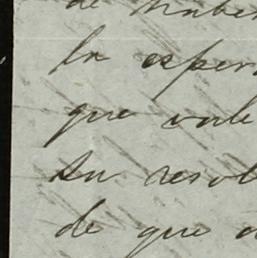 de haber
la esper
que vale
su resol
de que